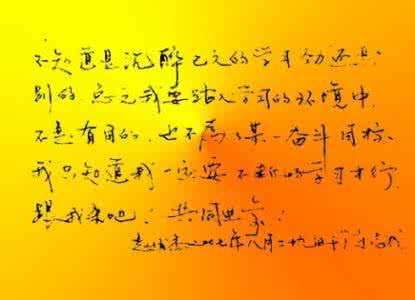 不知道是沉醉已久的学习劲还是
别的,总之我要踏入学习的环境中
不是有目的,也不为了某一奋斗目标,
我只知道我一定要不断的学习才行
跟我来吧!共同
七年八月二十九日